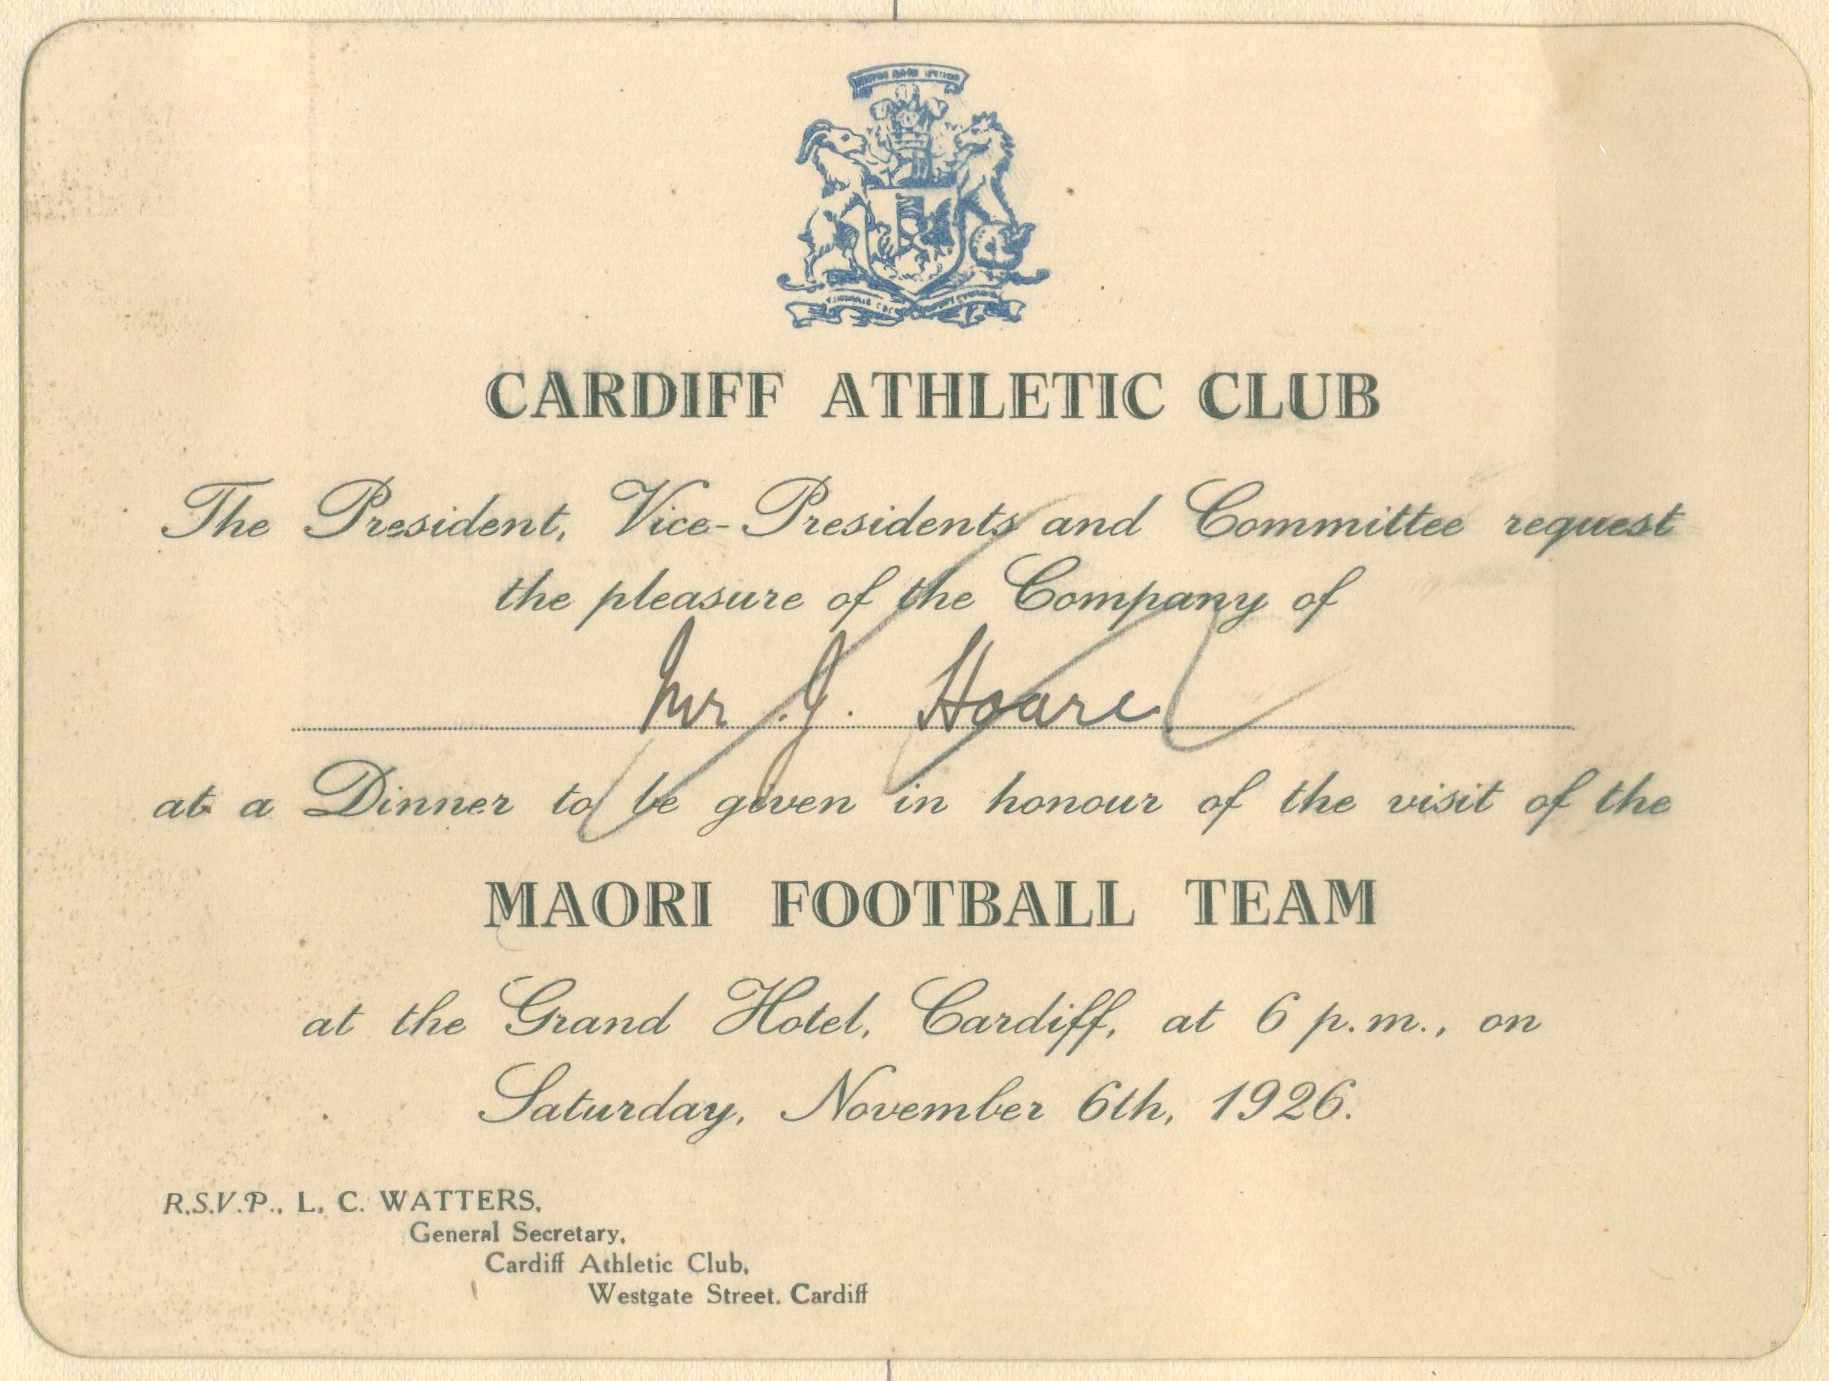 CARDIFF ATHLETIC CLUB
The President, Vice-Presidents and Committee request
the pleasure of the Company of
Mr J. Hoare
at a Dinner to be given in honour of the visit of the
MAORI FOOTBALL TEAM
at the Grand Hotel, Cardiff, at 6 p.m., on
Saturday, November 6th, 1926.
R.S.V.P., L. C. WATTERS,
General Secretary,
Cardiff Athletic Club,
Westgate Street. Cardiff